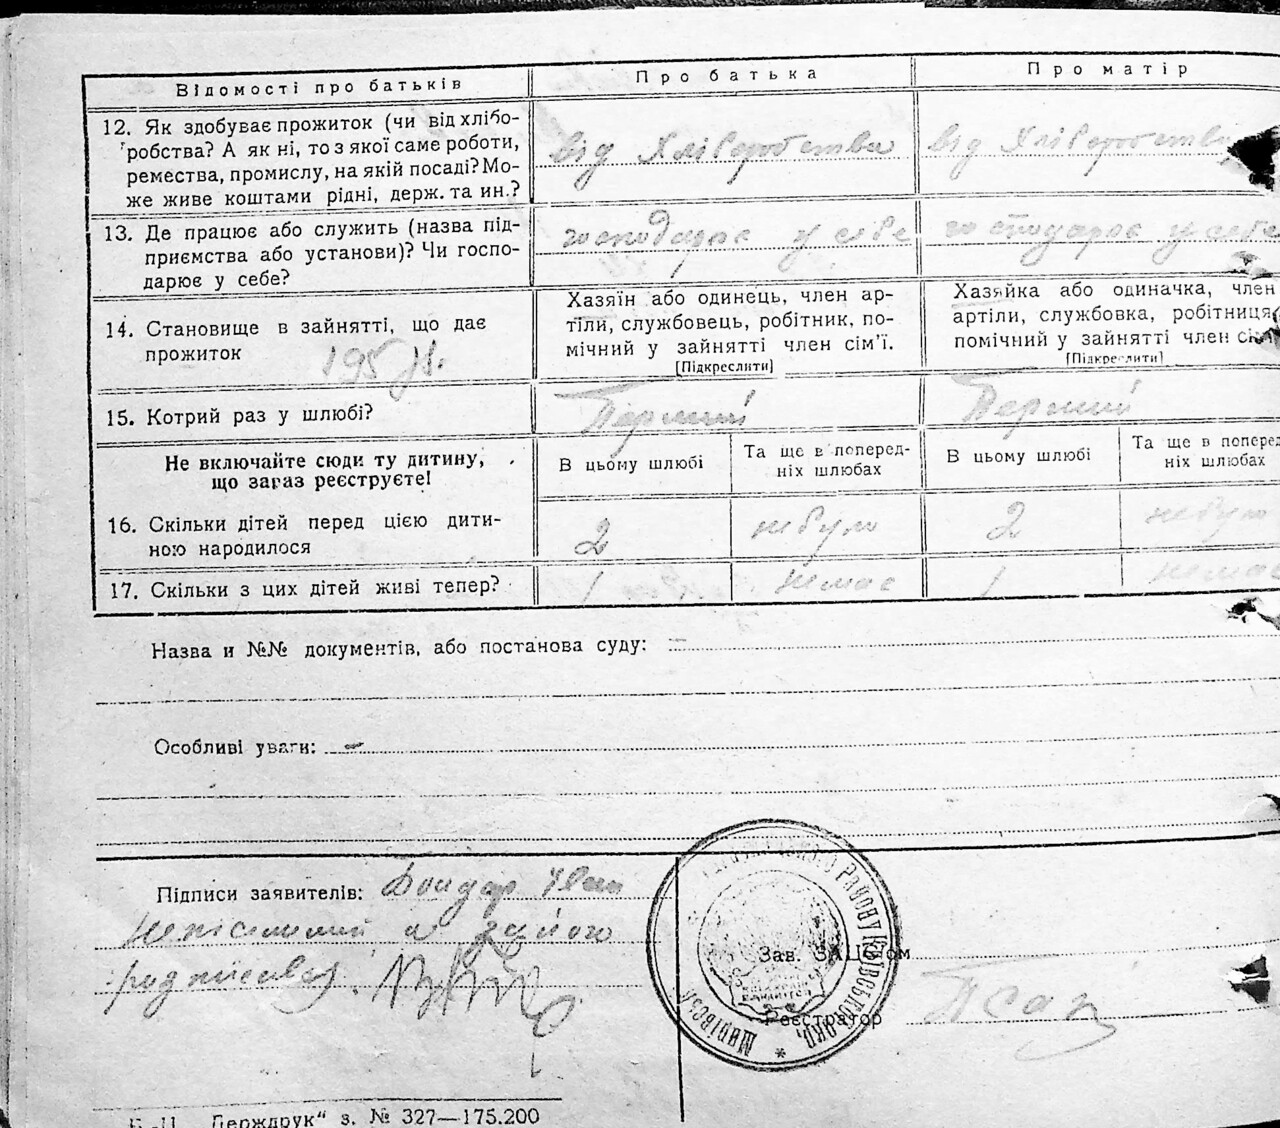 Відомості про батьків
Про батька
Про матір
12. Як здобуває прожиток (чи від хлібо-
робства? А як ні, то з якої саме роботи,
ремества, промислу, на якій посаді? Мо-
же живе коштами рідні, держ. та ин.?
від Хліборобства
від Хліборобства
13. Де працює або служить (назва під-
приємства або установи)? Чи госпо-
дарює у себе?
господарює у себе
господарює у себе
14. Становище в зайнятті, що дає
прожиток
195
Хазяїн або одинець, член ар-
тіли, службовець, робітник, по-
мічний у зайнятті член сім'ї.
[Підкреслити]
Хазяйка або одиначка, член
артіли, службовка, робітниця,
помічний у зайнятті член сім'ї
[Підкреслити]
15. Котрий раз у шлюбі?
Перший
Перший
Не включайте сюди ту дитину,
що зараз реєструєте!
В цьому шлюбі
Та ще в поперед-
ніх шлюбах
В цьому шлюбі
Та ще в поперед
ніх шлюбах
16. Скільки дітей перед цією дити-
ною народилося
2
небуло
2
небуло
17. Скільки з цих дітей живі тепер?
1
немає
1
немає
Назва и №№ документів, або постанова суду: –
Особливі уваги: –
Підписи заявителів: Бондар Іван
Неписьмений а за його
росписався
РАЙОНУ КИЇВСЬК. ОКР.
Зав. ЗАЦ'ом
Реєстратор
Держдрук" з. № 327—175.200